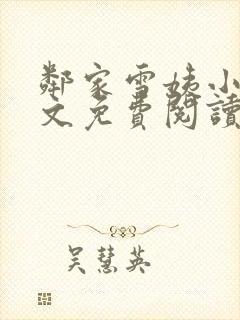 鄰家雪姨小
文免費閱讀
吴慧英